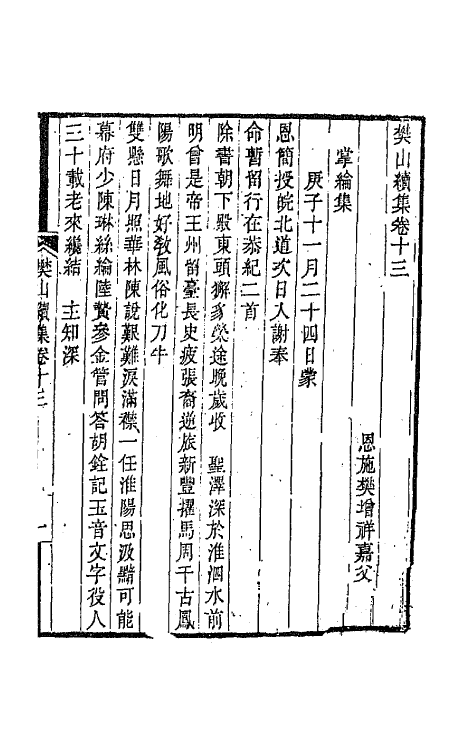 樊山續集卷十三
恩施樊增祥嘉父
掌綸集
庚子十一月二十四日蒙
恩簡授皖北道次日入謝奉
命暫留行在恭紀二首
除書朝下殿東頭獬豸榮途晚歲收　聖澤深於淮泗水前
明曾是帝王州留臺長史疲張裔逆旅新豐擢馬周千古鳳
陽歌舞地好敎風俗化刀牛
雙懸日月照華林陳說艱難淚滿襟一任淮陽思汲黯可能
幕府少陳琳絲綸陸贄參金管問答胡銓記玉音文字役人
三十載老來纔結　主知深
樊山續集卷十三　一